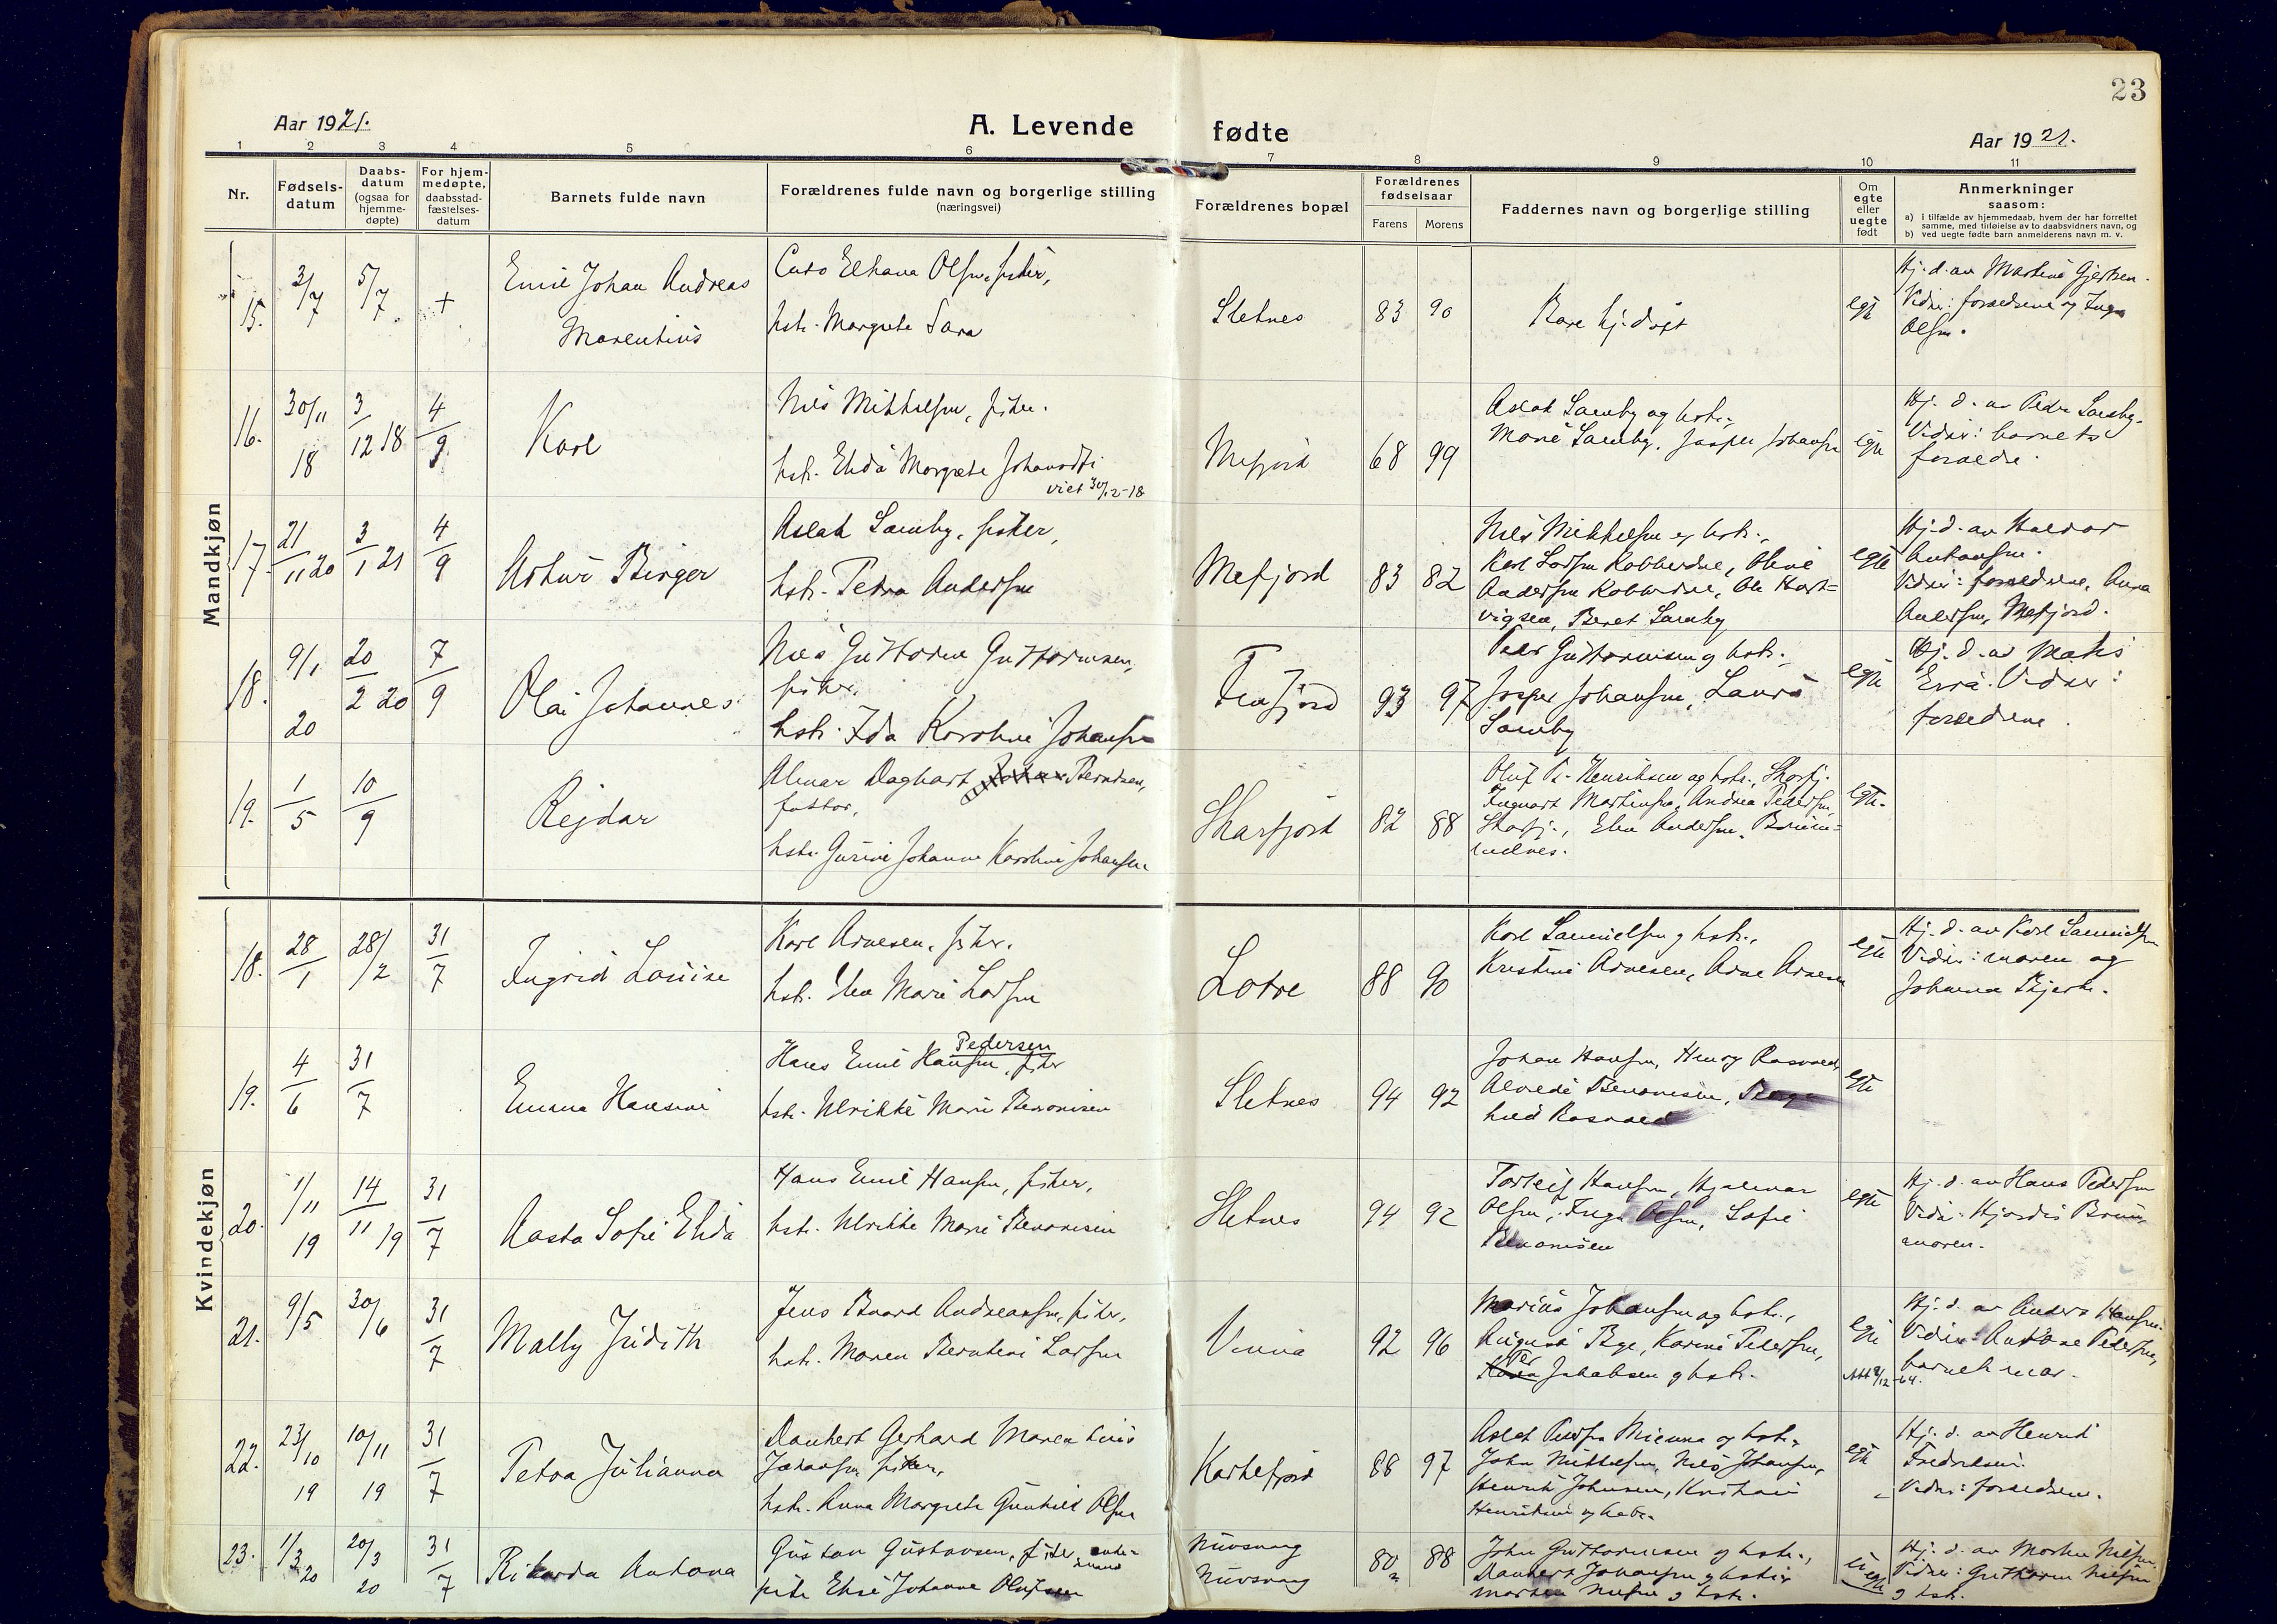 23
Aar 1921.
A. Levende fødte
Aar 1921.
1 2 3 4 5 6 7 8 9 10 11
Nr.
Fødselsdatum
Daabsdatum (ogsaa for hjemmedøpte)
For hjemmedøpte, daabsstadfæstelsesdatum
Barnets fulde navn
Forældrenes fulde navn og borgerlige stilling
(næringsvei)
Forældrenes bopæl
Forældrenes fødselsaar
Farens Morens
Faddernes navn og borgerlige stilling
Om egte eller uegte født
Anmerkninger
saasom:
a) i tilfælde av hjemmedaab, hvem der har forrettet samme, med tilføielse av to daabsvidners navn, og
b) ved uegte fødte barn anmelderens navn m. v.
Mandkjøn
15. 3/7 5/7 + Emil Johan Andreas
Marentius
Olsen, fisker,
hstr. Margrete Sara
Sletnes 83 90
Bare hj. døpt
egte
Hj. d. av Martine Gjertsen.
Vidner: forældrene og Inga
Olsen.
16. 30/11 18 3/12 18 4/9 Karl
Nils Mikkelsen, fisker.
hstr. Elida Margrete Johansdtr
viet 30/12-18
Mefjord 68 99
Aslak Samby og hstr.,
Marie Samby, Jasper Johansen
egte
Hj. d. av Peder Samby.
Vidner: barnets
forældre.
17. 21/11 20 3/1 21 4/9 Artur Birger
Aslak Samby, fisker,
hstr. Petra Andersen
Mefjord 83 82
Nils Mikkelsen og hstr.,
Karl Larsen Kobberdne, Oline
Andersen Kobberdne, Ole Hart=
vigsen, Beret Samby
egte
Hj. d. av Haldor
Antonsen.
Vidner: forældrene, Anna
Andersen, Mefjord.
18. 9/1 20 20/2 20 7/9 Olai Johannes
Nils Guttorm Guttormsen,
fisker,
hstr. Ida Karoline Johansen
93 97
Peder Guttormsen og hstr.,
Jasper Johansen, Laura
Samby
egte
Hj. d. av Mats
Vidner:
forældrene.
19. 1/5 10/9 Rejdar
Almar Daghart Berntsen,
hstr. Gurine Johanne Karoline Johansen
Skarfjord 82 88
Oluf P. Henriksen og hstr., Skarfj.
Ingvart Martinsen, Andrea Pedersen
Skarfj., Elen Andersen,
egte.
Kvindekjøn
18. 28/1 28/2 31/7 Ingrid Louise
Karl Arnesen, fisker.
hstr. Marie Larsen
Lotre 88 90
Karl Samuelsen og hstr.,
Kristine Arnesen, Arne Arnesen
egte
Hj. d. av Karl Samuelsen
Vidner: moren og
Johanna Bjerk.
19. 4/6 31/7 Emma Hansine
Pedersen
Hans Emil Hansen, fisker
hstr. Ulrikke Marie Benonisen
Sletnes 94 92
Johan Hansen, Henry Rasvald,
Benonisen,
egte
20. 1/11 19 14/11 19 31/7 Aasta Sofie Elida
Hans Emil Hansen, fisker,
hstr. Ulrikke Marie Benonisen
Sletnes 94 92
Torleif Hansen, Hjalmar
Olsen, Inga Olsen, Sofie
Benonisen
egte
Hj. d. av Hans Pedersen
Vidn. Hjordis Bruun,
moren.
21. 9/5 30/6 31/7 Mally Judith
Jens Baard Andreassen, fisker,
hstr. Maren Berntine Larsen
Vinna 92 96
Marius Johansen og hstr.,
August Bye, Karine Pedersen,
Per
Jakobsen og hstr.
egte
Att 9/12-64.
Hj. d. av Anders Hansen.
Vidner: Antone Pedersen,
barnets mor.
22. 23/10 19 10/11 19 31/7 Petra Julianna
Dankert Gerhard Marentius
Johansen fisker,
hstr. Anna Margrete Gunhild Olsen
Karhefjord 88 97
Aslak Persen Mienna og hstr.,
John Mikkelsen, Nils Johansen,
Henrik Johnsen, Kristian
Henriksen og hstr.
egte
Hj. d. av Henrik
Fredriksen.
Vidner: forældrene.
23. 1/3 20 20/3 20 31/7 Rikarda Antona
Gustav Gustavsen, fisker, enke=
mand
pike Elise Johanne Olufsen
Nuvsvaag
Nuvsvaag
80 88
John Guttormsen og hstr.,
Dankert Johansen og hstr.
Morten Nilsen og hstr.
uegte
Hj. d. av Morten Nilsen.
Vidner: Guttorm Nilsen
og hstr.